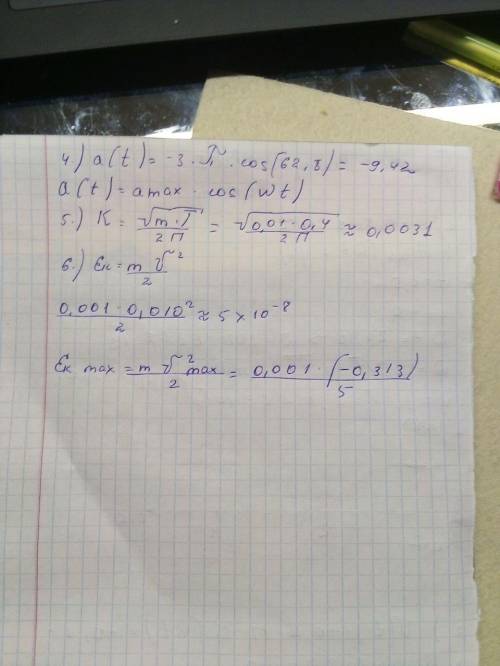 4.) a(t) = -3 · π · cos(62,8) = -9,42
a(t) = a max · cos(wt)
5.) K = √(m·T)/2П = √(0,01·0,4)/2П ≈ 0,0031
6.) Eк = mv²/2
0,001·0,010²/2 ≈ 5 × 10⁻⁸
Eк max = mv² max/2 = 0,001·(-0,313)/5